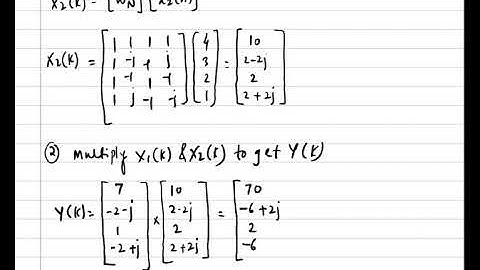 X₂(k) = [W_N] [x₂(n)]
X₂(k) = [1 1 1 1; 1 -j -1 j; 1 -1 1 -1; 1 j -1 -j] [4; 3; 2; 1] = [10; 2-2j; 2; 2+2j]
② Multiply X₁(k) & X₂(k) to get Y(k)
Y(k) = [7; -2-j; 1; -2+j] × [10; 2-2j; 2; 2+2j] = [70; -6+2j; 2; -6]